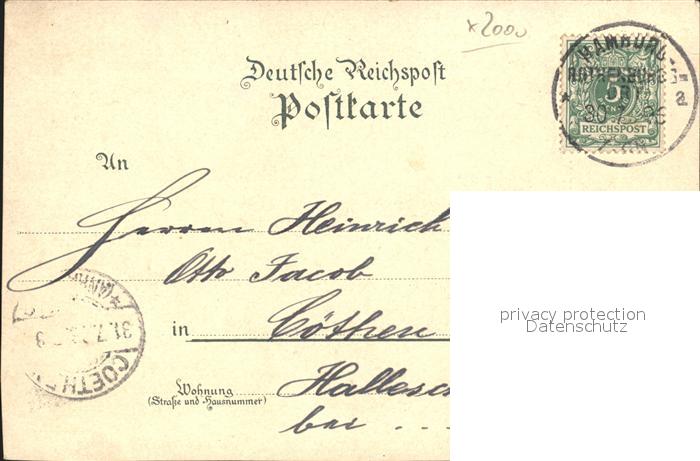 x2000
Deutsche Reichspost
Postkarte
HAMBURG-
ROTHENBURGS-
a
5
REICHSPOST
An
Herrn Heinrich
Otto Jacob
in Cöthen
Wohnung
(Straße und Hausnummer)
Hallesc
bei ...
31.7.
COETHEN
privacy protection
Datenschutz